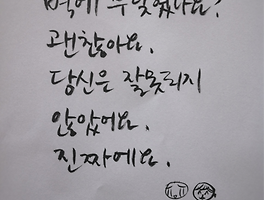 벽에 부딪혔나요?
괜찮아요.
당신은 잘못되지
않았어요.
진짜에요.